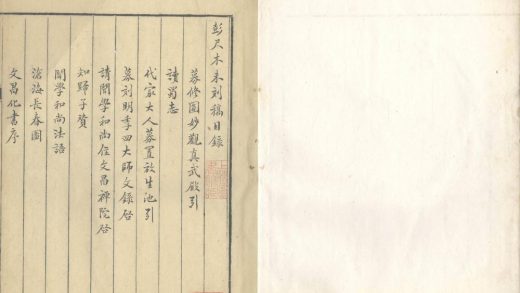 彭尺木未刻稿目錄
募修圓妙觀真武殿引
讀蜀志
代家大人募置放生池引
募刻明季四大師文錄啓
請聞學和尚住文昌禪院啓
知歸子贊
聞學和尚法語
滄海長春圖
文昌化書序